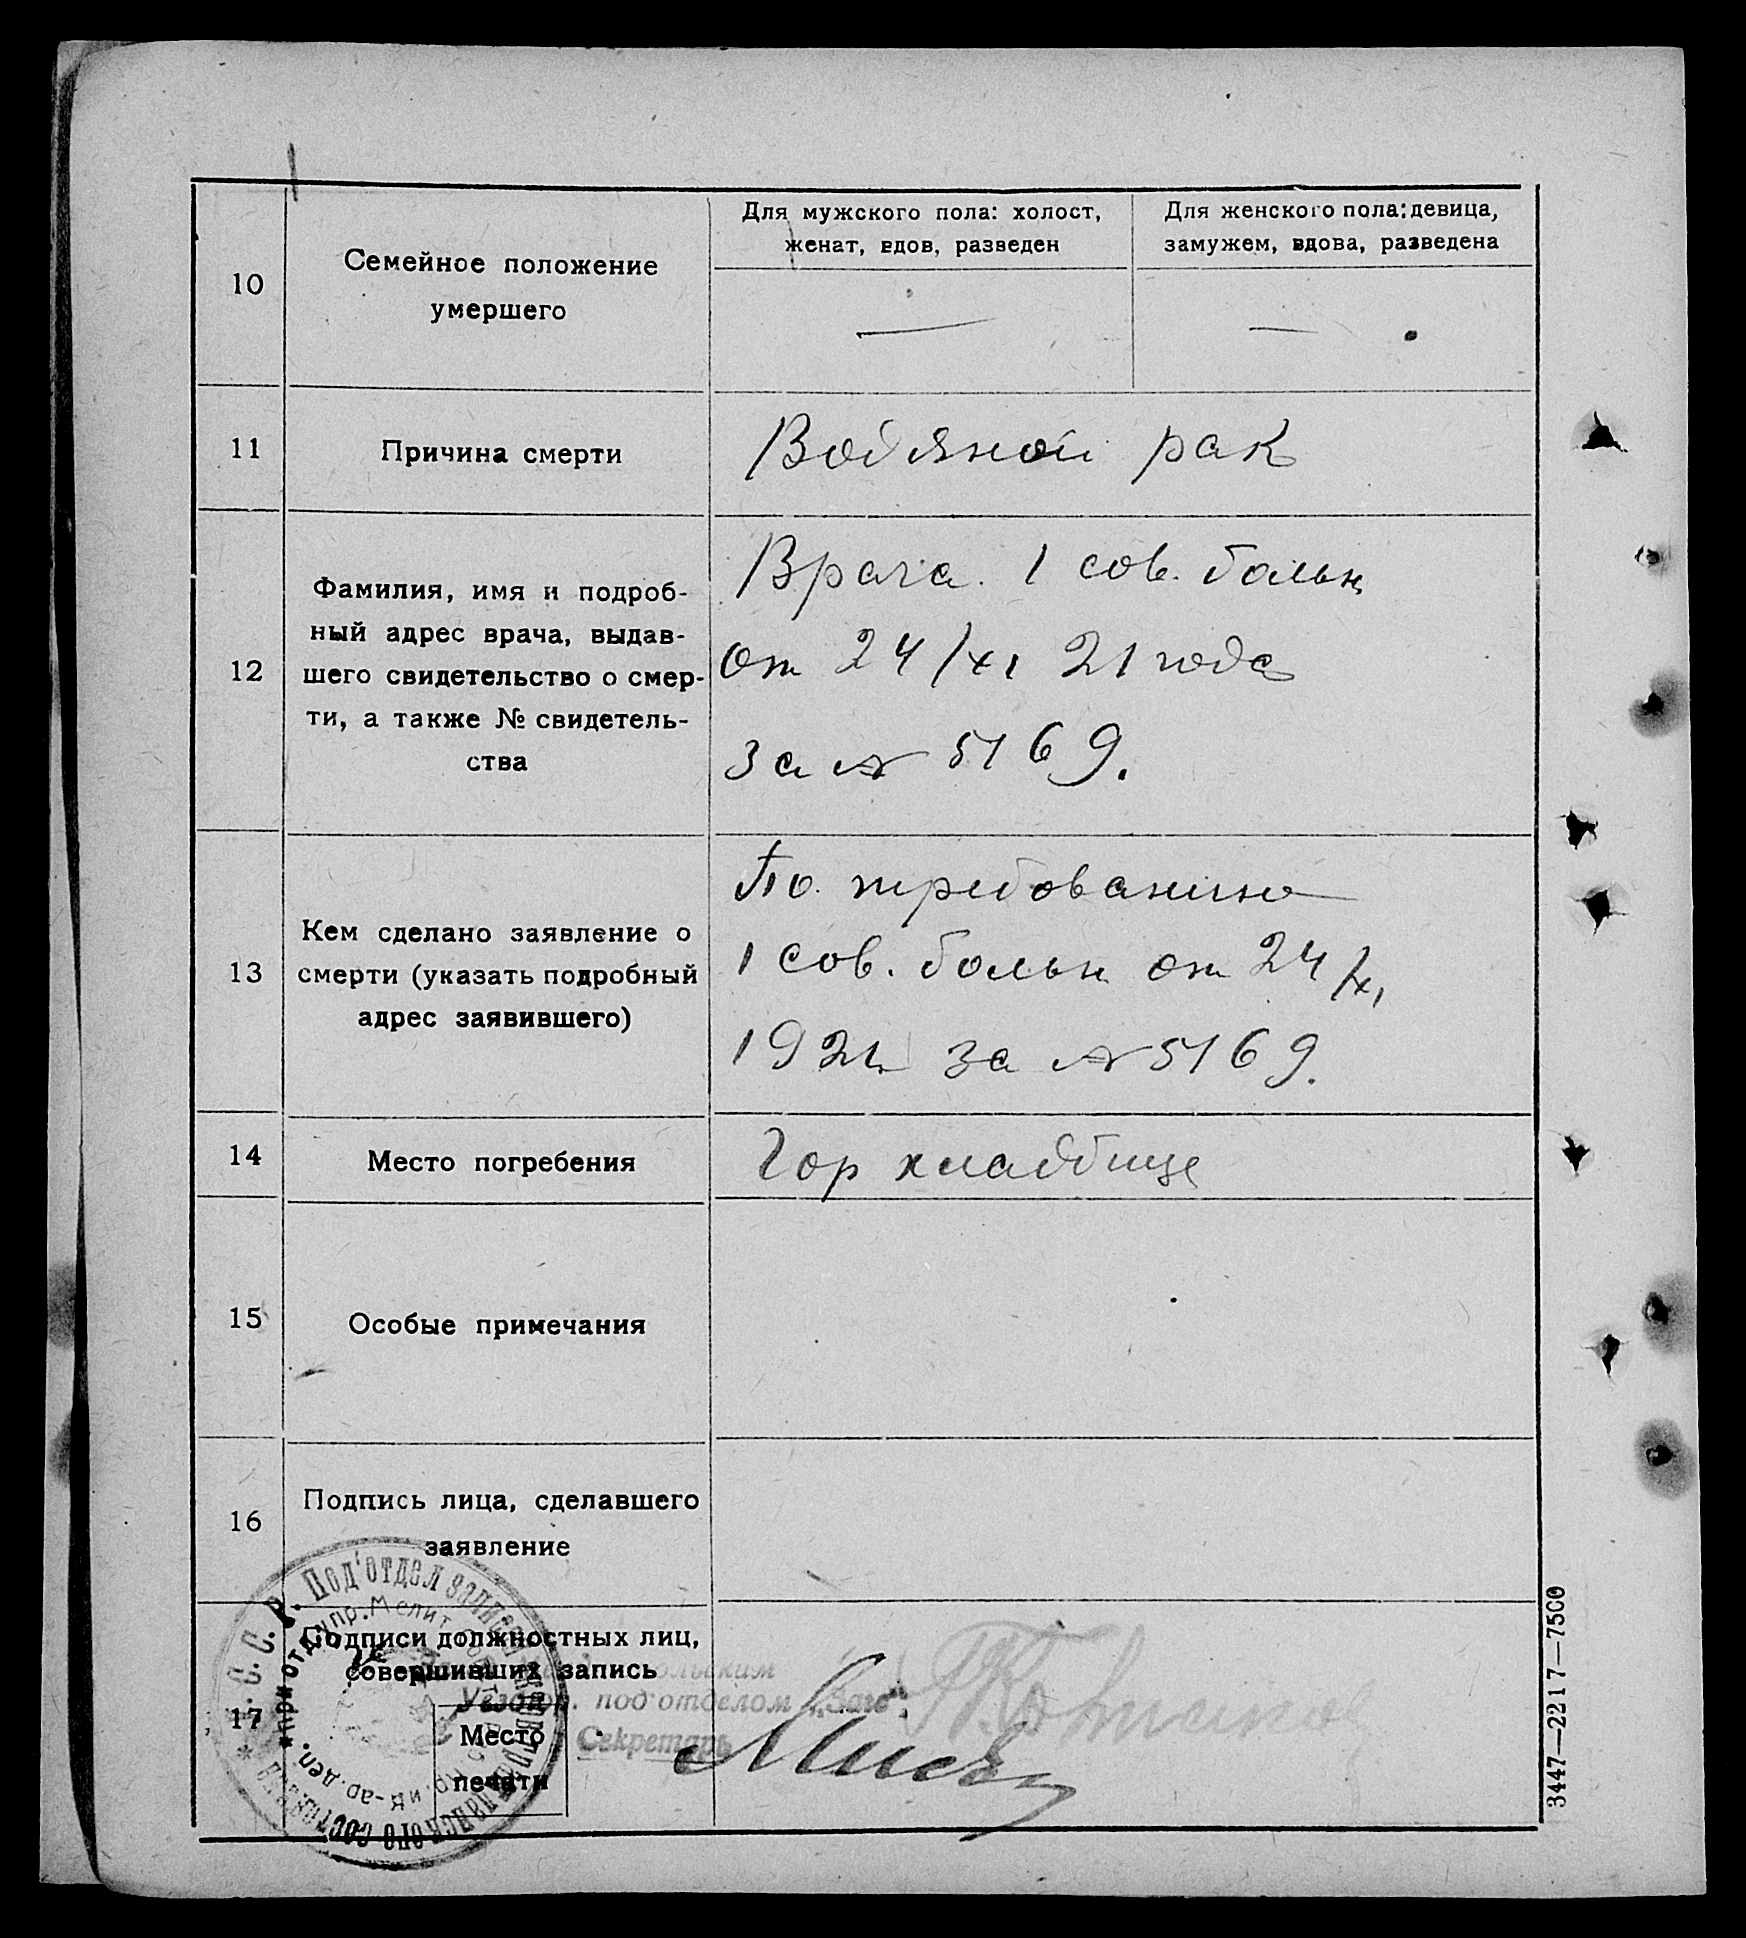 10
Семейное положение
умершего
Для мужского пола: холост,
женат, вдов, разведен
Для женского пола: девица,
замужем, вдова, разведена
—
—
11
Причина смерти
Водяной рак
12
Фамилия, имя и подроб-
ный адрес врача, выдав-
шего свидетельство о смер-
ти, а также № свидетель-
ства
Врача. 1 сов. больн
от 24/XI 21 года
за № 5169.
13
Кем сделано заявление о
смерти (указать подробный
адрес заявившего)
По требованию
1 сов. больн от 24/XI
1921 за № 5169.
14
Место погребения
Гор кладбище
15
Особые примечания
16
Подпись лица, сделавшего
заявление
17
Подписи должностных лиц,
совершивших запись
Место
печати
под'отделом „Загс".
Секретарь
С. С. Р. Под'отдел записи
при отд. упр. Мелит
3447—2217—7500